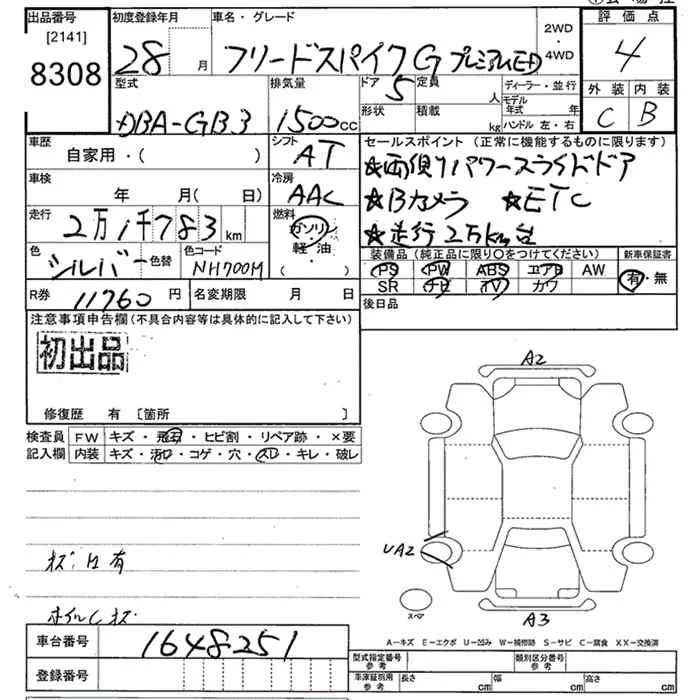 出品番号 初度登録年月 車名・グレード 2WD・4WD 評価点
[2141]
8308
28 月 フリードスパイクG プレミアムED 4
型式 排気量 ドア 5 定員 人 ディーラー・並行 外装 内装
DBA-GB3 1500cc 形状 積載 kg モデル年式 年 ハンドル 左・右 C B
車歴 自家用・( ) シフト AT
セールスポイント(正常に機能するものに限ります)
★両側パワースライドドア
★Bカメラ ★ETC
★走行2万km台
車検 年 月(日) 冷房 AAC
走行 2万1千783km 燃料 ガソリン・軽油・( )
色 シルバー 色替 色コード NH700M
装備品(純正品に限り○をつけてください) 新車保証書
PS PW ABS エアB AW 有・無
SR ナビ TV カワ
R券 11760円 名変期限 月 日 後日品
注意事項申告欄(不具合内容等は具体的に記入して下さい)
初出品
修復歴 有 [箇所 ]
検査員記入欄 FW キズ・飛石・ヒビ割・リペア跡・×要
内装 キズ・汚れ・コゲ・穴・スレ・キレ・破レ
A2
UA2
スペア
A3
ホイルCキズ
A-キズ E-エクボ U-凹み W-補修跡 S-サビ C-腐食 XX-交換済
車台番号 1648251
登録番号
型式指定番号 参考 類別区分番号 参考
車庫証明用 参考 長さ cm 幅 cm 高さ cm